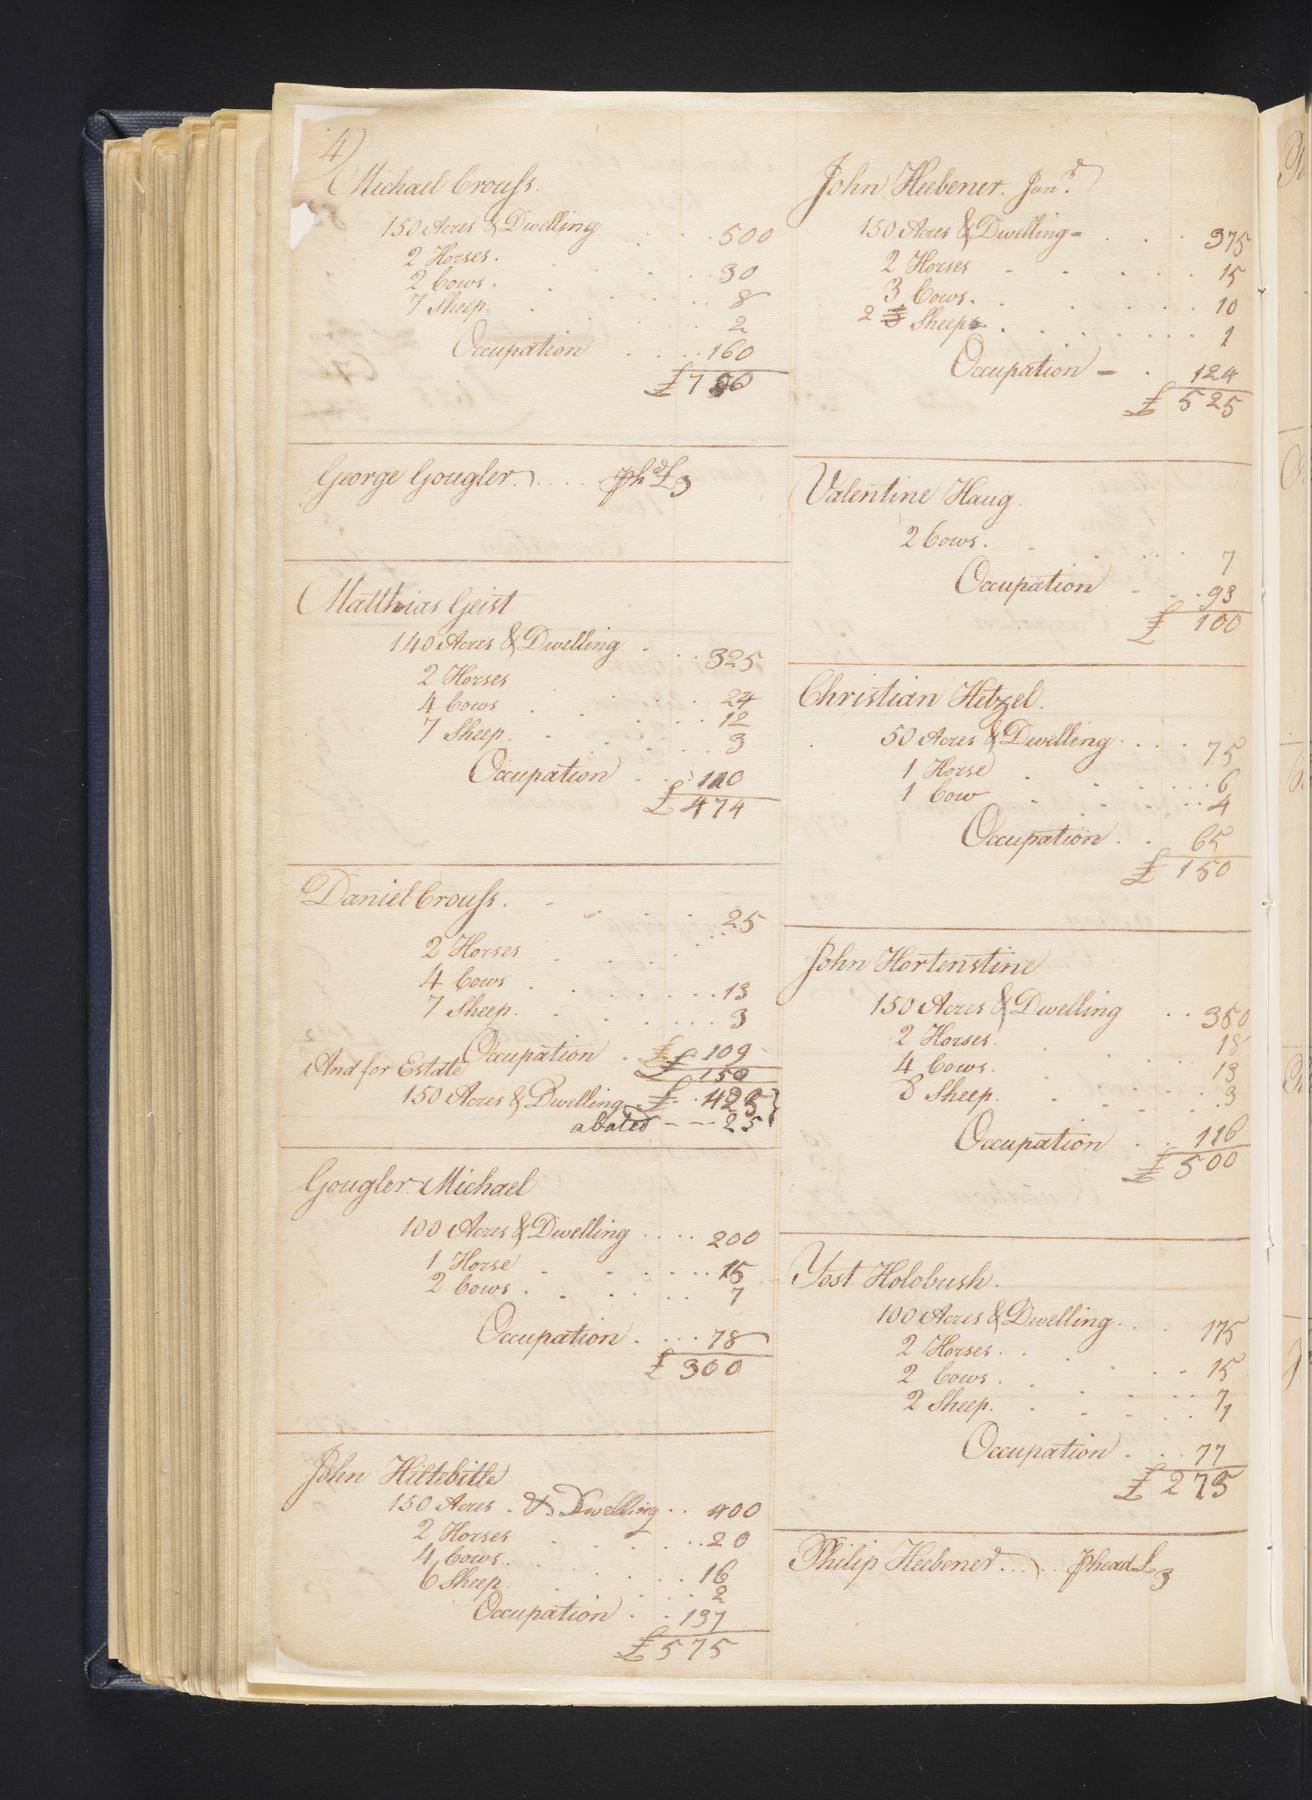 4)
Michael Crouss.
150 Acres & Dwelling . . . 500
2 Horses. . . . . 30
2 Cows. . . . . . 8
7 Sheep . . . . . 2
Occupation . . . . 160
£ 700
George Gougler . . . . . ⅌ hd £ 3
Matthias Geist
140 Acres & Dwelling . . . 325
2 Horses . . . 24
4 Cows . . . . . 12
7 Sheep. . . . . . 3
Occupation . . . 110
£ 474
Daniel Crouss. . . . . .
2 Horses . . . 25
4 Cows . . . . . . 13
7 Sheep. . . . . . 3
Occupation . £ 109
£ 150
And for Estate
150 Acres & Dwelling £ . 425
abated - - - 25
Gougler Michael
100 Acres & Dwelling . . . . 200
1 Horse . . . . . 15
2 Cows . . . . . 7
Occupation . . . . 78
£ 300
John Hiltebitle
150 Acres . & Dwelling . . 400
2 Horses . . . . 20
4 Cows. . . . . 16
6 Sheep . . . . 2
Occupation . . . 137
£ 575
John Heebener. Junr.
150 Acres & Dwelling - . . . 375
2 Horses - . . . . 15
3 Cows. . . . . 10
2 Sheep . . . . . . 1
Occupation - . 124
£ 525
Valentine Haug
2 Cows. . . . . 7
Occupation . . . 93
£ 100
Christian Hetzel.
50 Acres & Dwelling . . . . 75
1 Horse . . . . . 6
1 Cow . . . . . 4
Occupation . . 65
£ 150
John Hortenstine
150 Acres & Dwelling . . 350
2 Horses. . . . . 18
4 Cows. . . . . 13
8 Sheep. . . . . 3
Occupation . . 116
£ 500
Yost Holobush.
100 Acres & Dwelling . . . 175
2 Horses. . . . . 15
2 Cows . . . . . 7
2 Sheep. . . . . 1
Occupation . . . 77
£ 275
Philip Heebener . . . . . ⅌ head £ 3